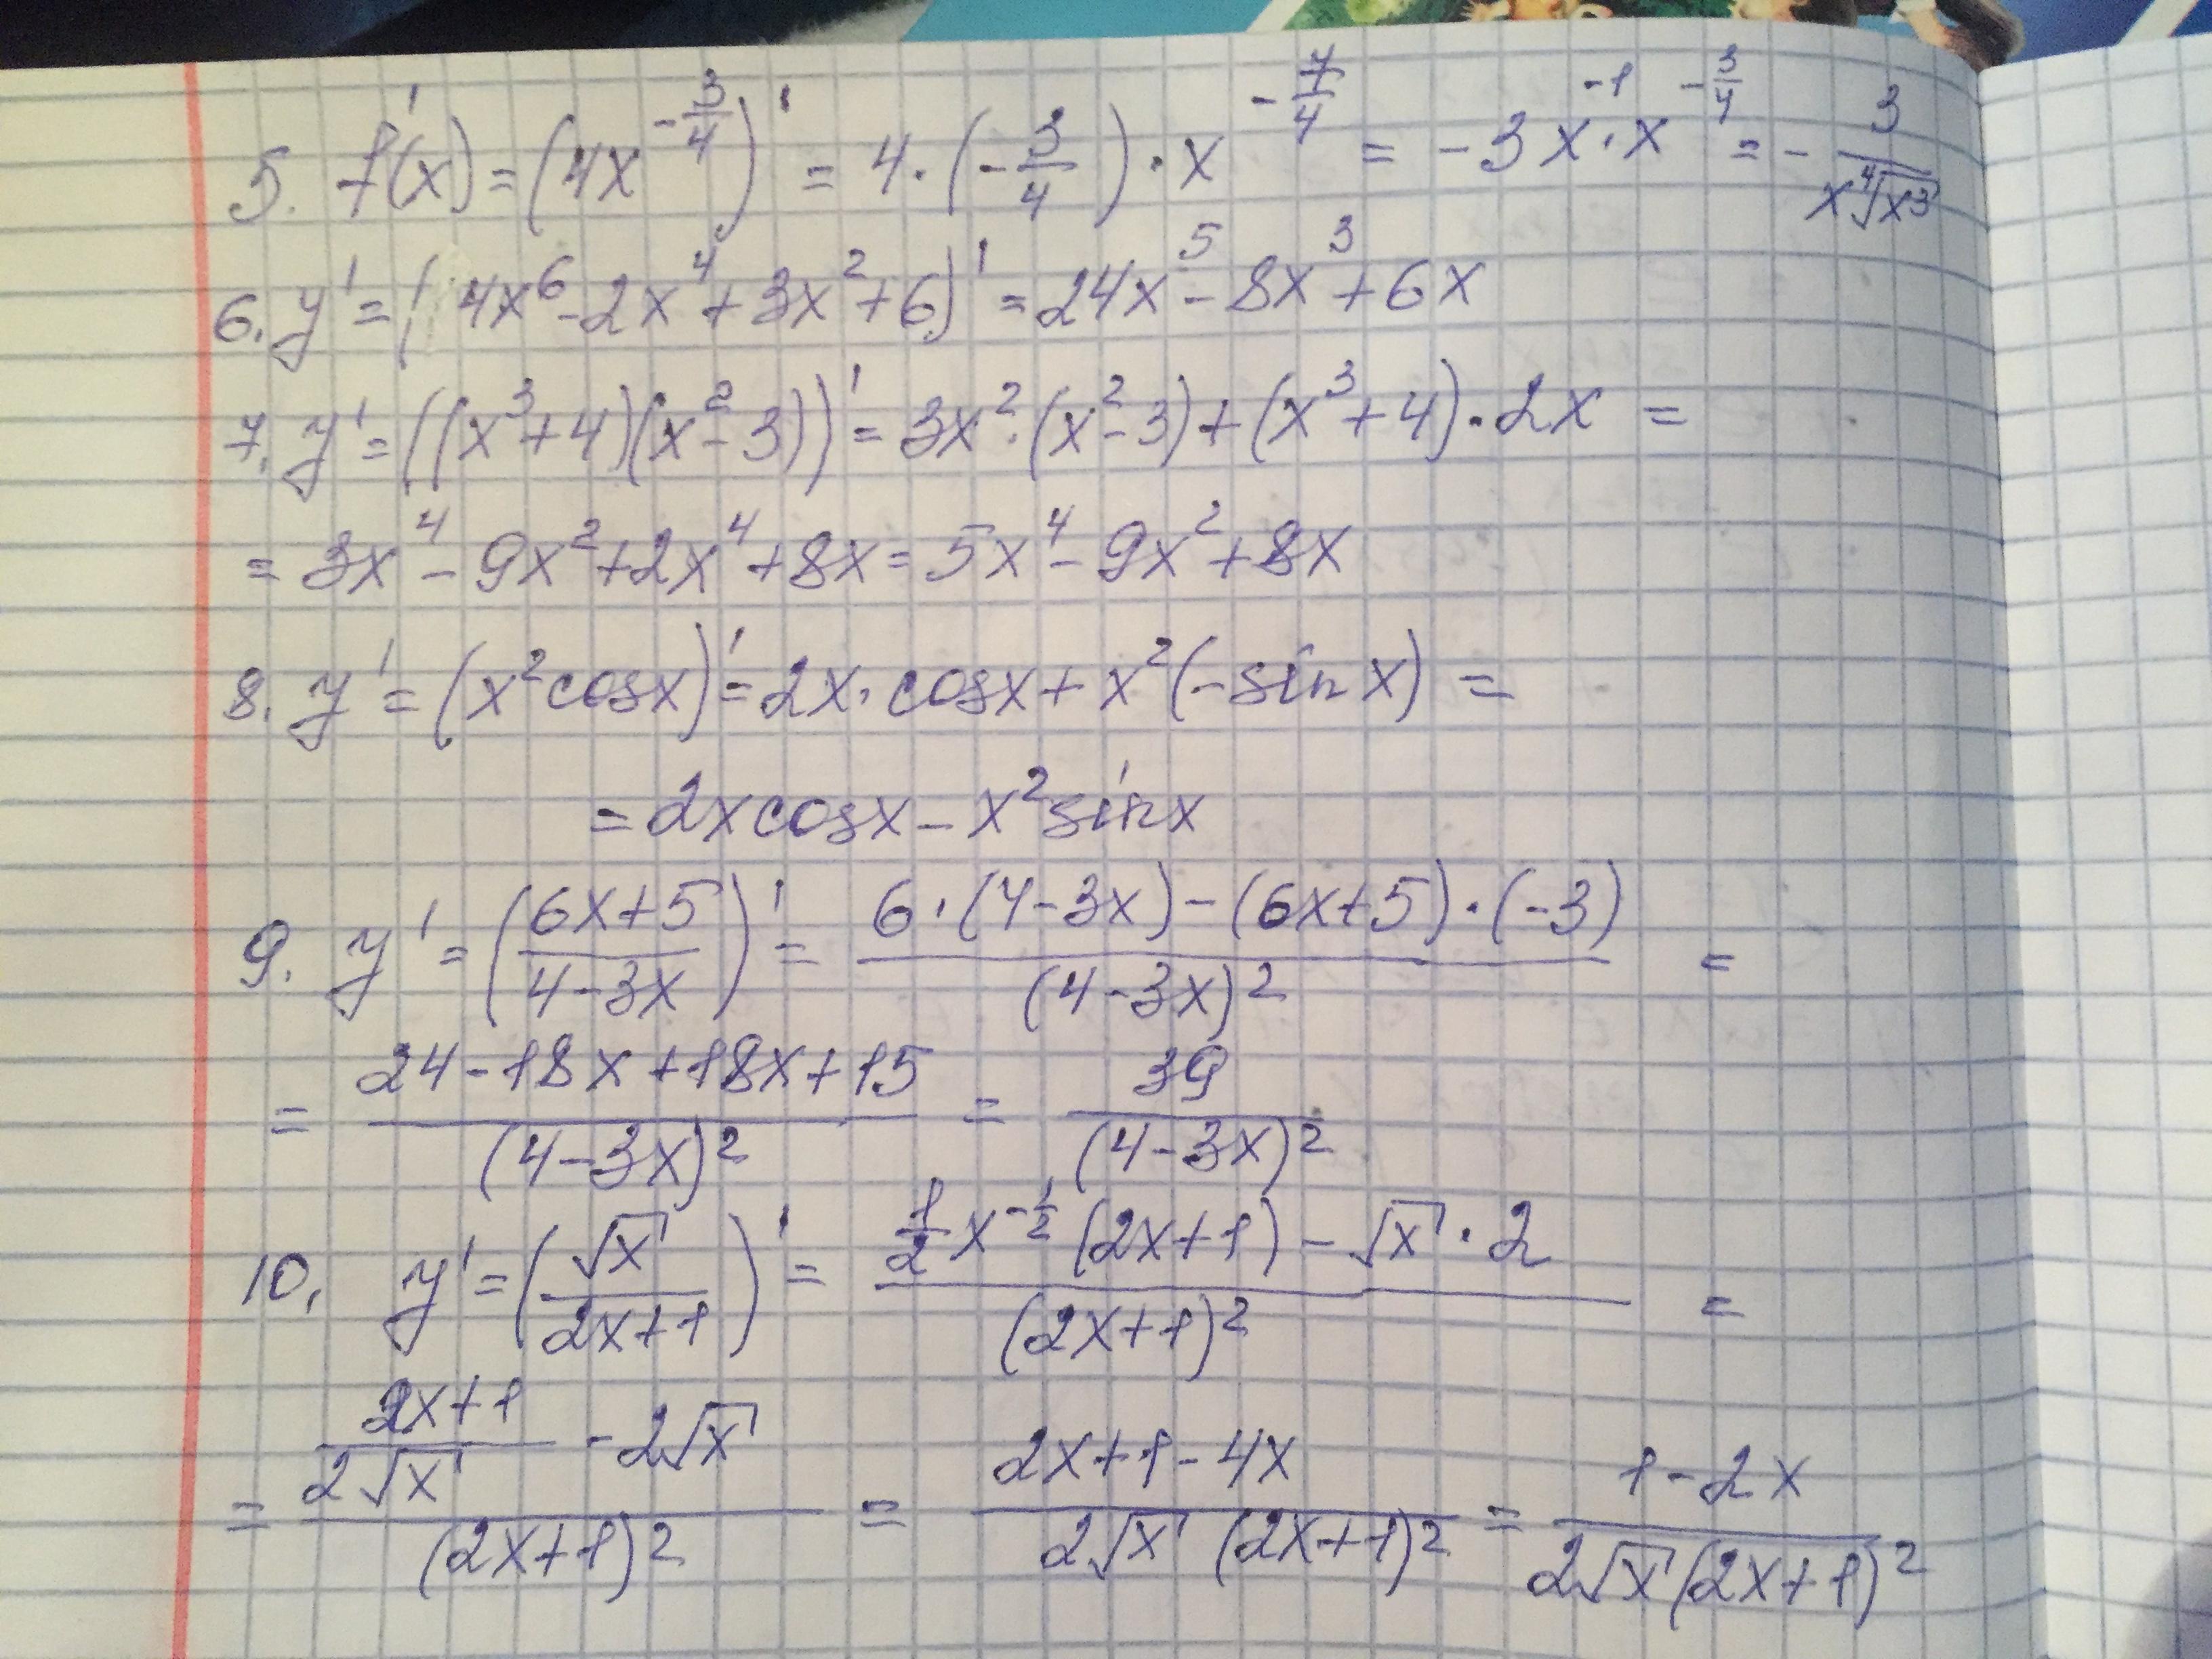 5. f'(x) = (4x^{-\frac{3}{4}})' = 4 · (-\frac{3}{4}) · x^{-\frac{7}{4}} = -3x^{-1} · x^{-\frac{3}{4}} = -\frac{3}{x\sqrt[4]{x^3}}
6. y' = (4x^6 - 2x^4 + 3x^2 + 6)' = 24x^5 - 8x^3 + 6x
7. y' = ((x^3+4)(x^2-3))' = 3x^2 · (x^2-3) + (x^3+4) · 2x =
= 3x^4 - 9x^2 + 2x^4 + 8x = 5x^4 - 9x^2 + 8x
8. y' = (x^2 cosx)' = 2x · cosx + x^2(-sin x) =
= 2x cosx - x^2 sinx
9. y' = (\frac{6x+5}{4-3x})' = \frac{6 · (4-3x) - (6x+5) · (-3)}{(4-3x)^2} =
= \frac{24-18x+18x+15}{(4-3x)^2} = \frac{39}{(4-3x)^2}
10. y' = (\frac{\sqrt{x}}{2x+1})' = \frac{\frac{1}{2}x^{-\frac{1}{2}}(2x+1) - \sqrt{x} · 2}{(2x+1)^2} =
= \frac{\frac{2x+1}{2\sqrt{x}} - 2\sqrt{x}}{(2x+1)^2} = \frac{2x+1-4x}{2\sqrt{x}(2x+1)^2} = \frac{1-2x}{2\sqrt{x}(2x+1)^2}